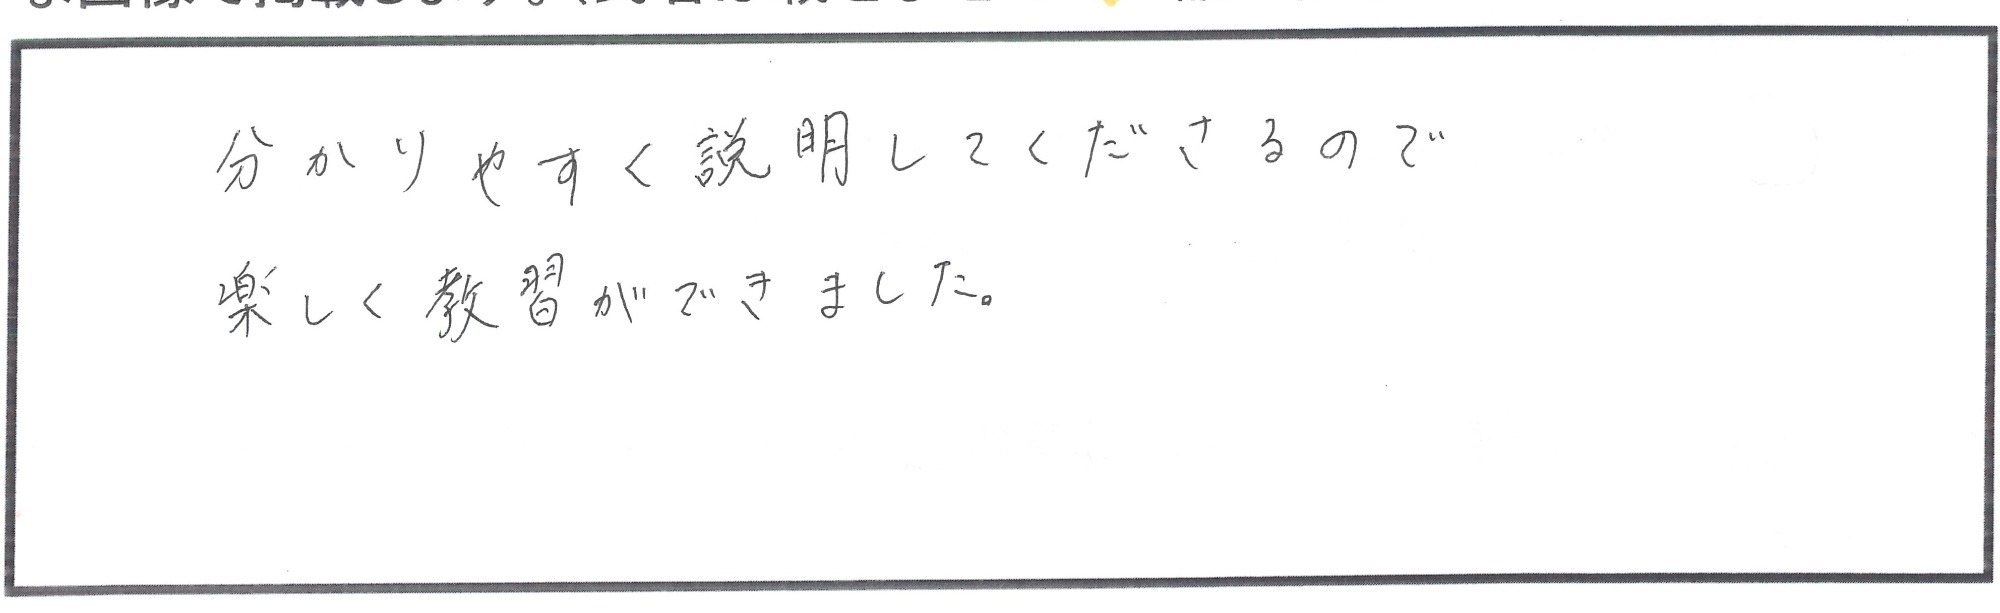 分かりやすく説明してくださるので
楽しく教習ができました。